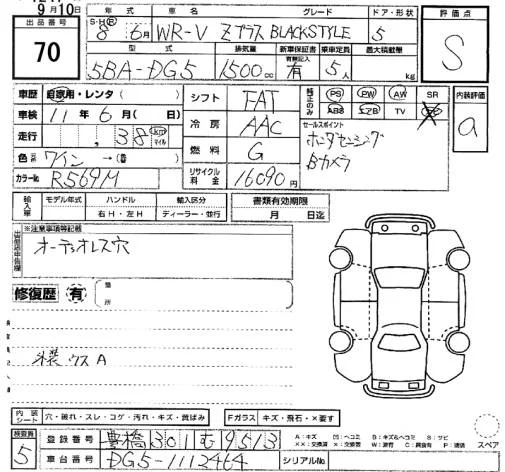 9月10日
出品番号
70
年式 車名 グレード ドア・形状
S・H・Ⓡ 8 6月 WR-V Zプラス BLACKSTYLE 5
型式 排気量 新車保証書 有無記入 乗車定員 最大積載量
5BA-DG5 1500cc 有 5人 kg
評価点
S
車歴 自家用・レンタ( )
車検 11年6月( 日)
走行 , 38 km マイル
色 ワイン→( )
カラーNo. R569M
シフト FAT
冷房 AAC
燃料 G
リサイクル料金 16090円
純正のみ PS PW AW SR
ABS エアB TV
セールスポイント
ホンダセンシング
Bカメラ
内装評価
a
輸入車 モデル年式 ハンドル 輸入区分
年 右H・左H ディーラー・並行
書類有効期限
月 日迄
※注意事項等記載
出品店申告欄
オーディオレス穴
修復歴 有
箇所
外装 ウスA
内装シート 穴・破れ・スレ・コゲ・汚れ・キズ・黄ばみ
Fガラス キズ・飛石・×要す
検査員
5
登録番号 豊橋 301 む 9513
車台番号 DG5-1112464
シリアルNo.
A:キズ U:ヘコミ B:キズ&ヘコミ S:サビ
××:交換済 ×:交換要 W:波有 C:腐食有 P:塗装
スペア